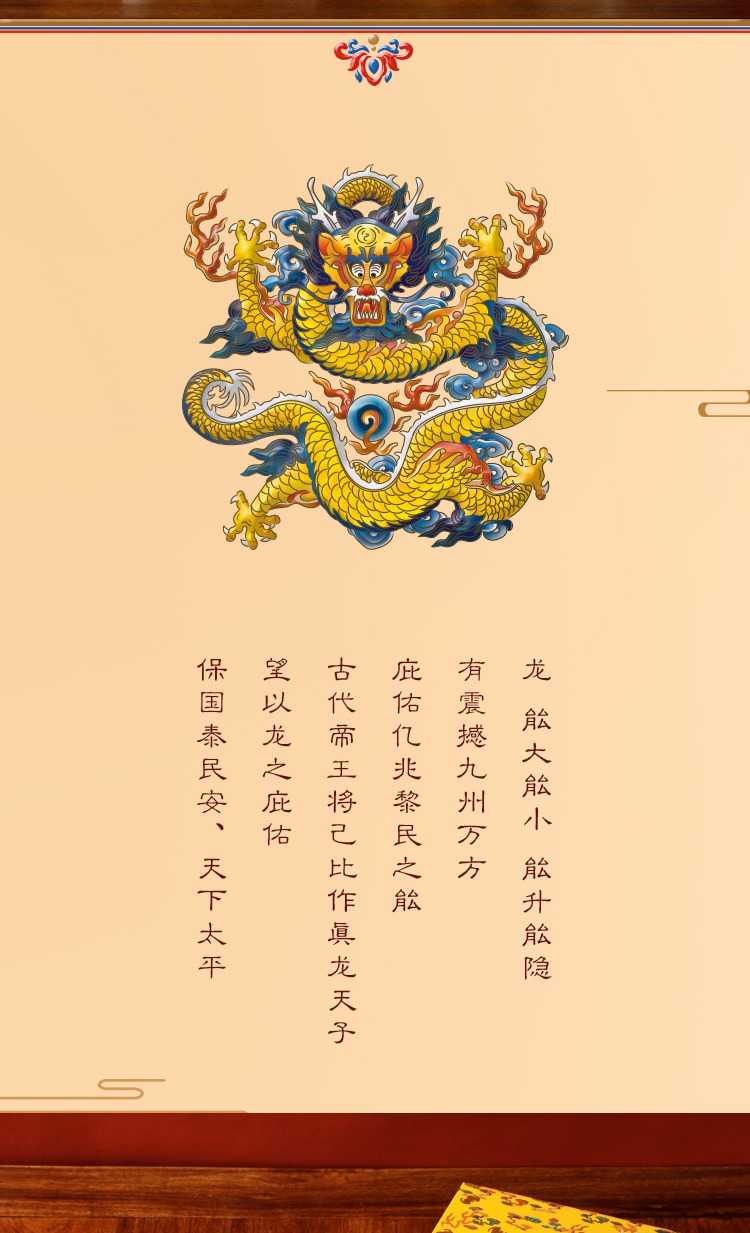 龙 能大能小 能升能隐
有震撼九州万方
庇佑亿兆黎民之能
古代帝王将己比作真龙天子
望以龙之庇佑
保国泰民安、天下太平